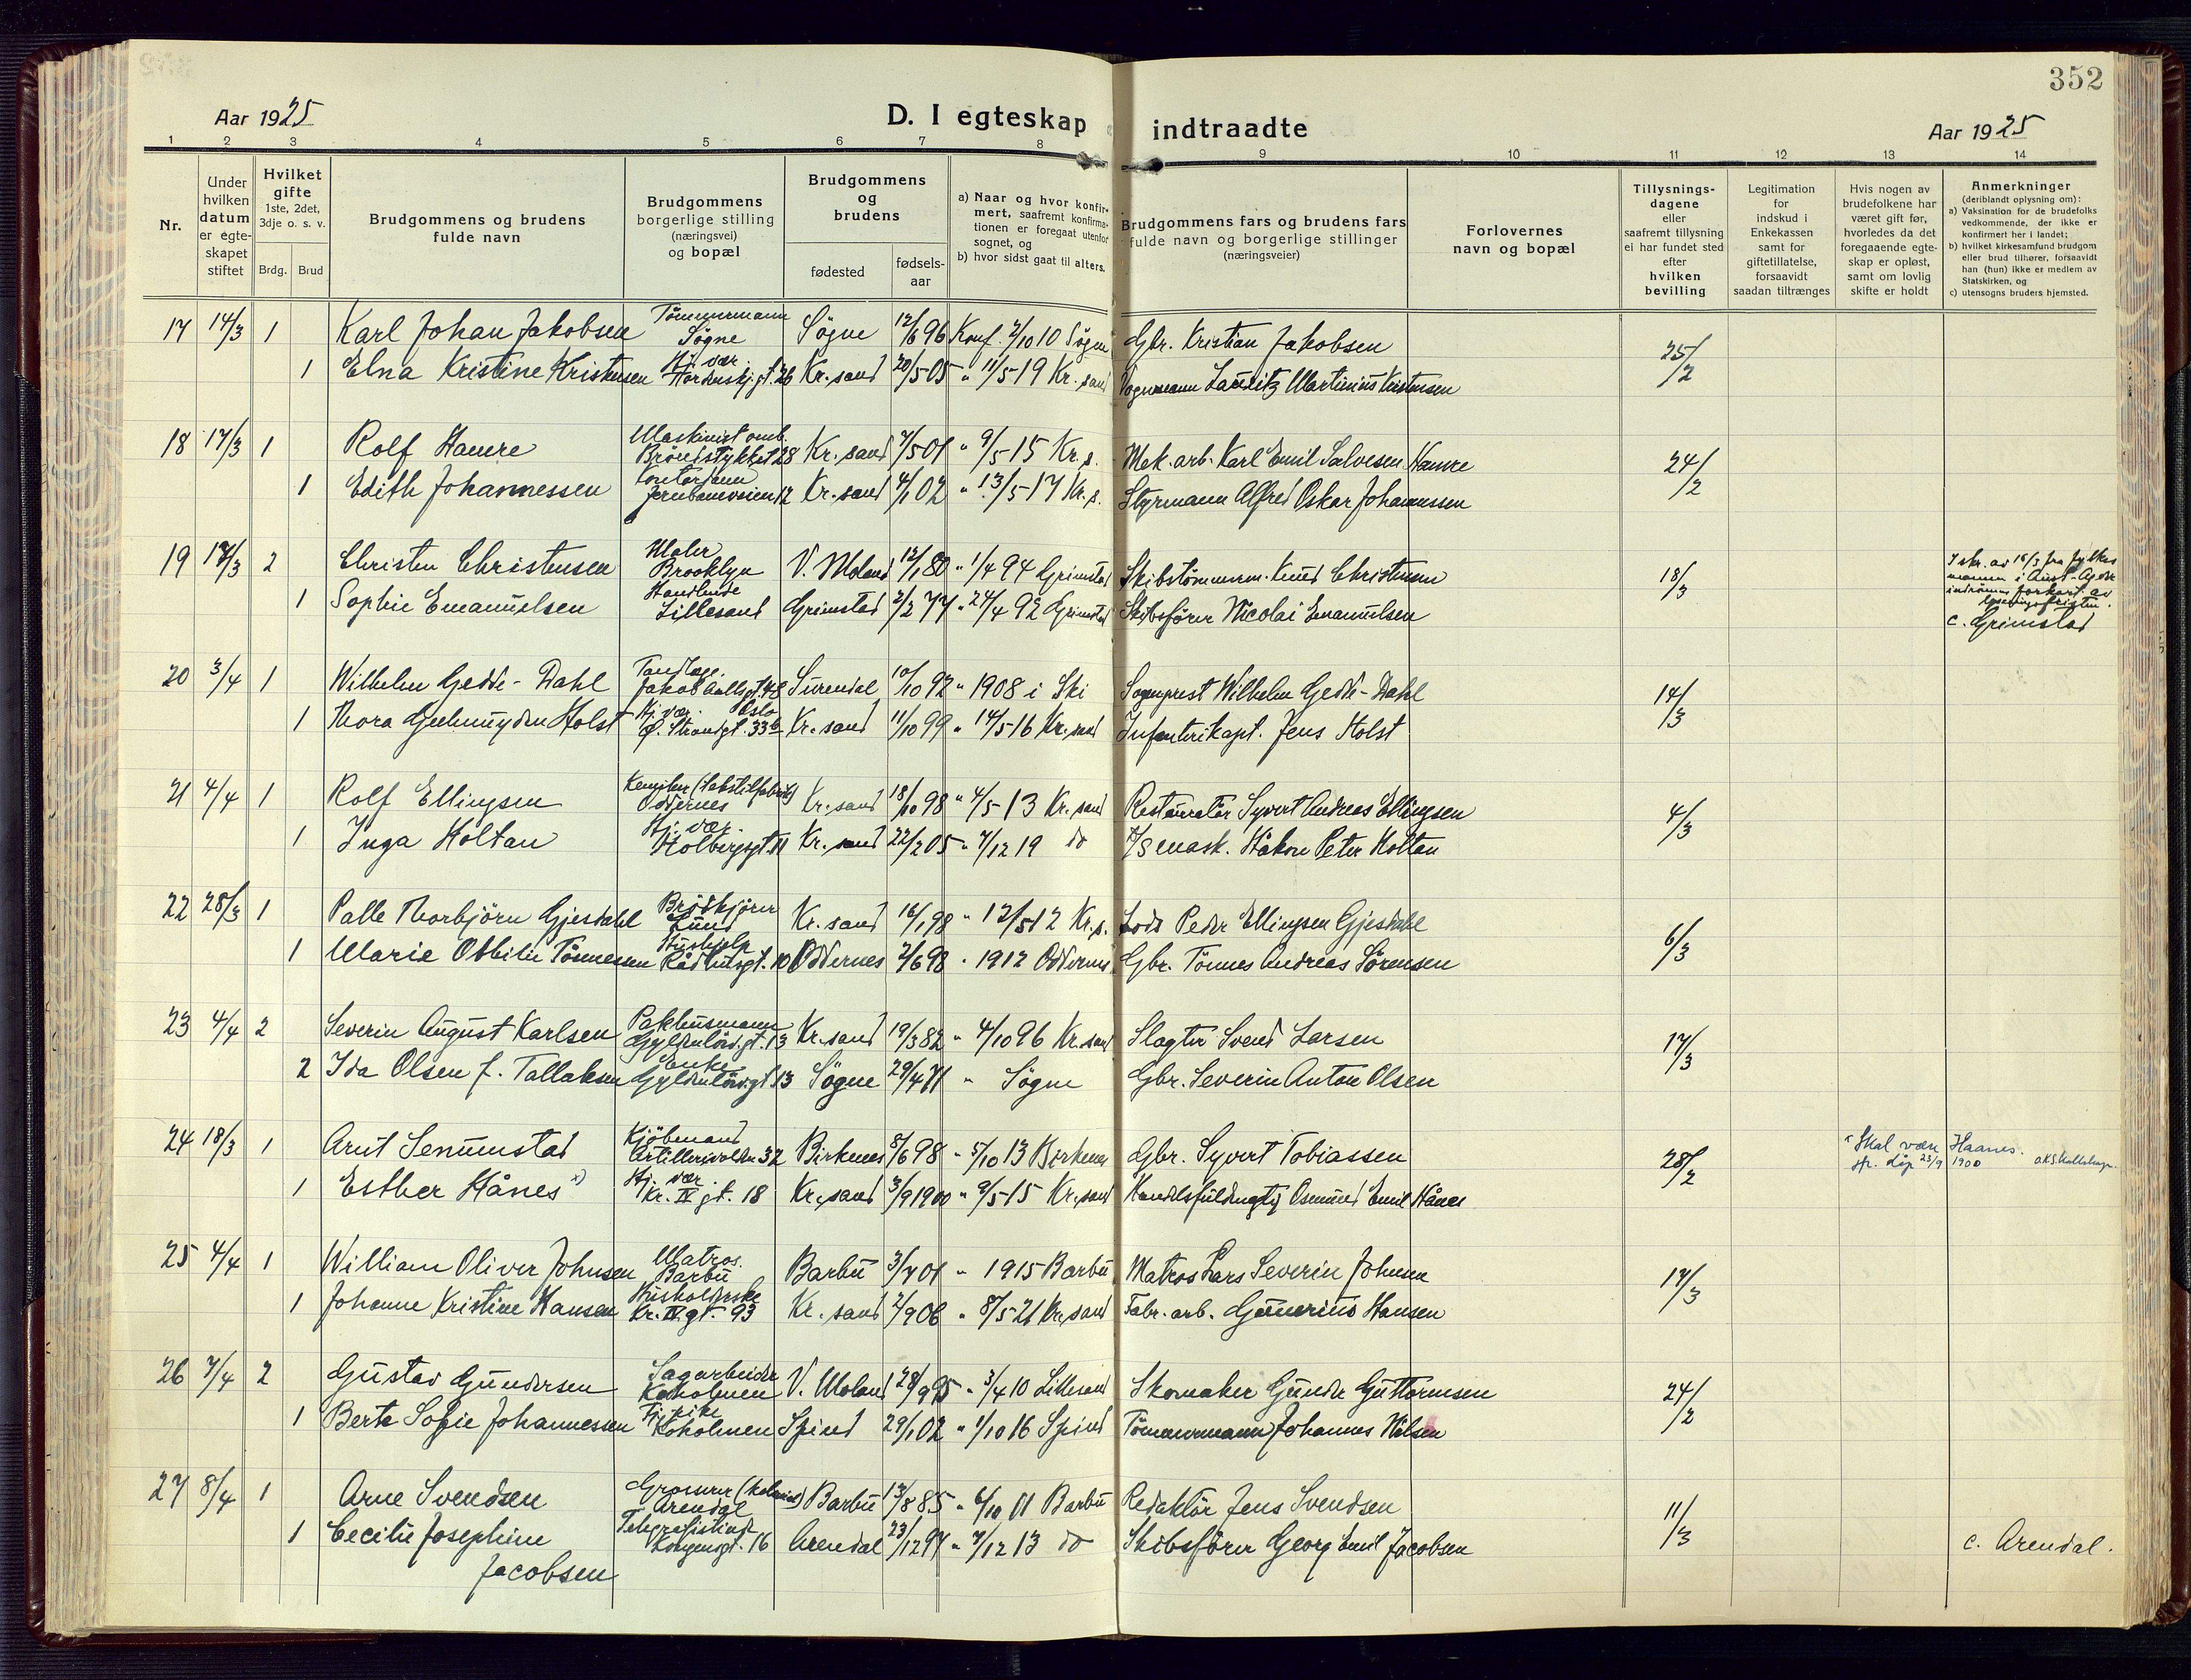 352
Aar 1925
D. I egteskap indtraadte
Aar 1925
1 2 3 4 5 6 7 8 9 10 11 12 13 14
Nr.
Under hvilken datum er egteskapet stiftet
Hvilket gifte 1ste, 2det, 3dje o. s. v.
Brdg. Brud
Brudgommens og brudens fulde navn
Brudgommens borgerlige stilling (næringsvei) og bopæl
Brudgommens og brudens
fødested
fødsels-aar
a) Naar og hvor konfirmert, saafremt konfirmationen er foregaat utenfor sognet, og
b) hvor sidst gaat til alters.
Brudgommens fars og brudens fars fulde navn og borgerlige stillinger (næringsveier)
Forlovernes navn og bopæl
Tillysningsdagene eller saafremt tillysning ei har fundet sted efter hvilken bevilling
Legitimation for indskud i Enkekassen samt for giftetillatelse, forsaavidt saadan tiltrænges
Hvis nogen av brudefolkene har været gift før, hvorledes da det foregaaende egteskap er opløst, samt om lovlig skifte er holdt
Anmerkninger
(deriblandt oplysning om):
a) Vaksination for de brudefolks vedkommende, der ikke er konfirmert her i landet;
b) hvilket kirkesamfund brudgom eller brud tilhører, forsaavidt han (hun) ikke er medlem av Statskirken, og
c) utensogns bruders hjemsted.
17 14/3 1 Karl Johan Jakobsen Tömmermann Sögne Sögne 12/6 96 Konf. 2/10 10 Sögne Gbr. Kristian Jakobsen 25/2
1 Elna Kristine Kristensen Hj. vær. gt. 26 Kr.sand 20/5 05 " 11/5 19 Kr.sand Vognmann Lauritz Martinius Kristensen
18 17/3 1 Rolf Hamre Maskinist omb. Bröndstykket 28 Kr.sand 7/5 01 " 9/5 15 Kr.s. Mek. arb. Karl Emil Salvesen Hamre 24/2
1 Edith Johannessen Jernbaneveien 12 Kr.sand 4/1 02 " 13/5 17 Kr.s. Styrmann Alfred Oskar Johannessen
19 3 2 Christen Christensen Maler Brooklyn V. Moland 12/1 80 " 1/4 94 Grimstad Skibstömmerm. Knud Christensen 18/3
1 Sophie Emanuelsen Lillesand Grimstad 2/2 77 " 24/4 92 Grimstad Skibsförer Nicolai Emanuelsen
i Aust-Agder
c. Grimstad
20 3/4 1 Wilhelm Gedde-Dahl Tandlæge Jakob Aallsgt. 48 Oslo Surendal 10/10 92 " 1908 i Ski Sogneprest Wilhelm Gedde-Dahl 14/3
1 Thora Holst Hj. vær. Ø. Strandgt. 33b Kr.sand 11/10 99 " 14/5 16 Kr.sand Infanterikapt. Jens Holst
21 4/4 1 Rolf Ellingsen Oddernes Kr.sand 18/10 98 " 4/5 13 Kr.sand Restauratör Syvert Andreas Ellingsen 4/3
1 Inga Holtan Hj. vær. Holbergsgt. 11 Kr.sand 22/2 05 " 7/12 19 do Håkon Peter Holtan
22 28/3 1 Palle Thorbjörn Gjesdahl Brödkjörer Lund Kr.sand 16/1 98 " 12/5 12 Kr.s. Lods Peder Ellingsen Gjesdahl 6/3
1 Marie Otbilie Tönnesen Hushjelp Rådhusgt. 10 Oddernes 2/6 98 " 1912 Oddernes Gbr. Tönnes Andreas Sörensen
23 4/4 2 Severin August Karlsen Pakhusmann Gyldenlövs.gt. 13 Kr.sand 19/3 82 " 4/10 96 Kr.sand Slagter Svend Larsen 17/3
2 Ida Olsen f. Tallaksen Enke Gyldenlövs.gt. 13 Sögne 29/4 71 " Sögne Gbr. Severin Anton Olsen
24 18/3 1 Arut Senumstad Kjöbmand Artillerivolden 32 Birkenes 8/6 98 " 5/10 13 Birkenes Gbr. Syvert Tobiassen 28/2
1 Esther Hånes x) Hj. vær. Kr. IV gt. 18 Kr.sand 3/9 1900 " 9/5 15 Kr.sand Handelsfuldmægtig Osmund Emil Hånes
x Skal være Haanes. 1900
25 4/4 1 William Oliver Johnsen Matros. Barbu Barbu 3/7 01 " 1915 Barbu Matros Lars Severin Johnsen 17/3
1 Johanne Kristine Hansen Husholderske Kr. IV gt. 93 Kr.sand 2/9 06 " 8/5 21 Kr.sand Fabr. arb. Gunerius Hansen
26 7/4 2 Gustav Gundersen Sagarbeider Koholmen V. Moland 28/9 95 " 3/4 10 Lillesand Skomaker Gunder Guttormsen 24/2
1 Berte Sofie Johannessen Koholmen Spind 29/1 02 " 1/10 16 Spind Tömmermann Johannes Nilsen
27 8/4 1 Arne Svendsen Grosserer (kolonial) Arendal Barbu 13/8 85 " 6/10 01 Barbu Redaktör Jens Svendsen 11/3
1 Cecilie Josephine Jacobsen Telegrafistinde Kongensgt. 16 Arendal 23/12 97 " 7/12 13 do Skibsförer Georg Emil Jacobsen c. Arendal.